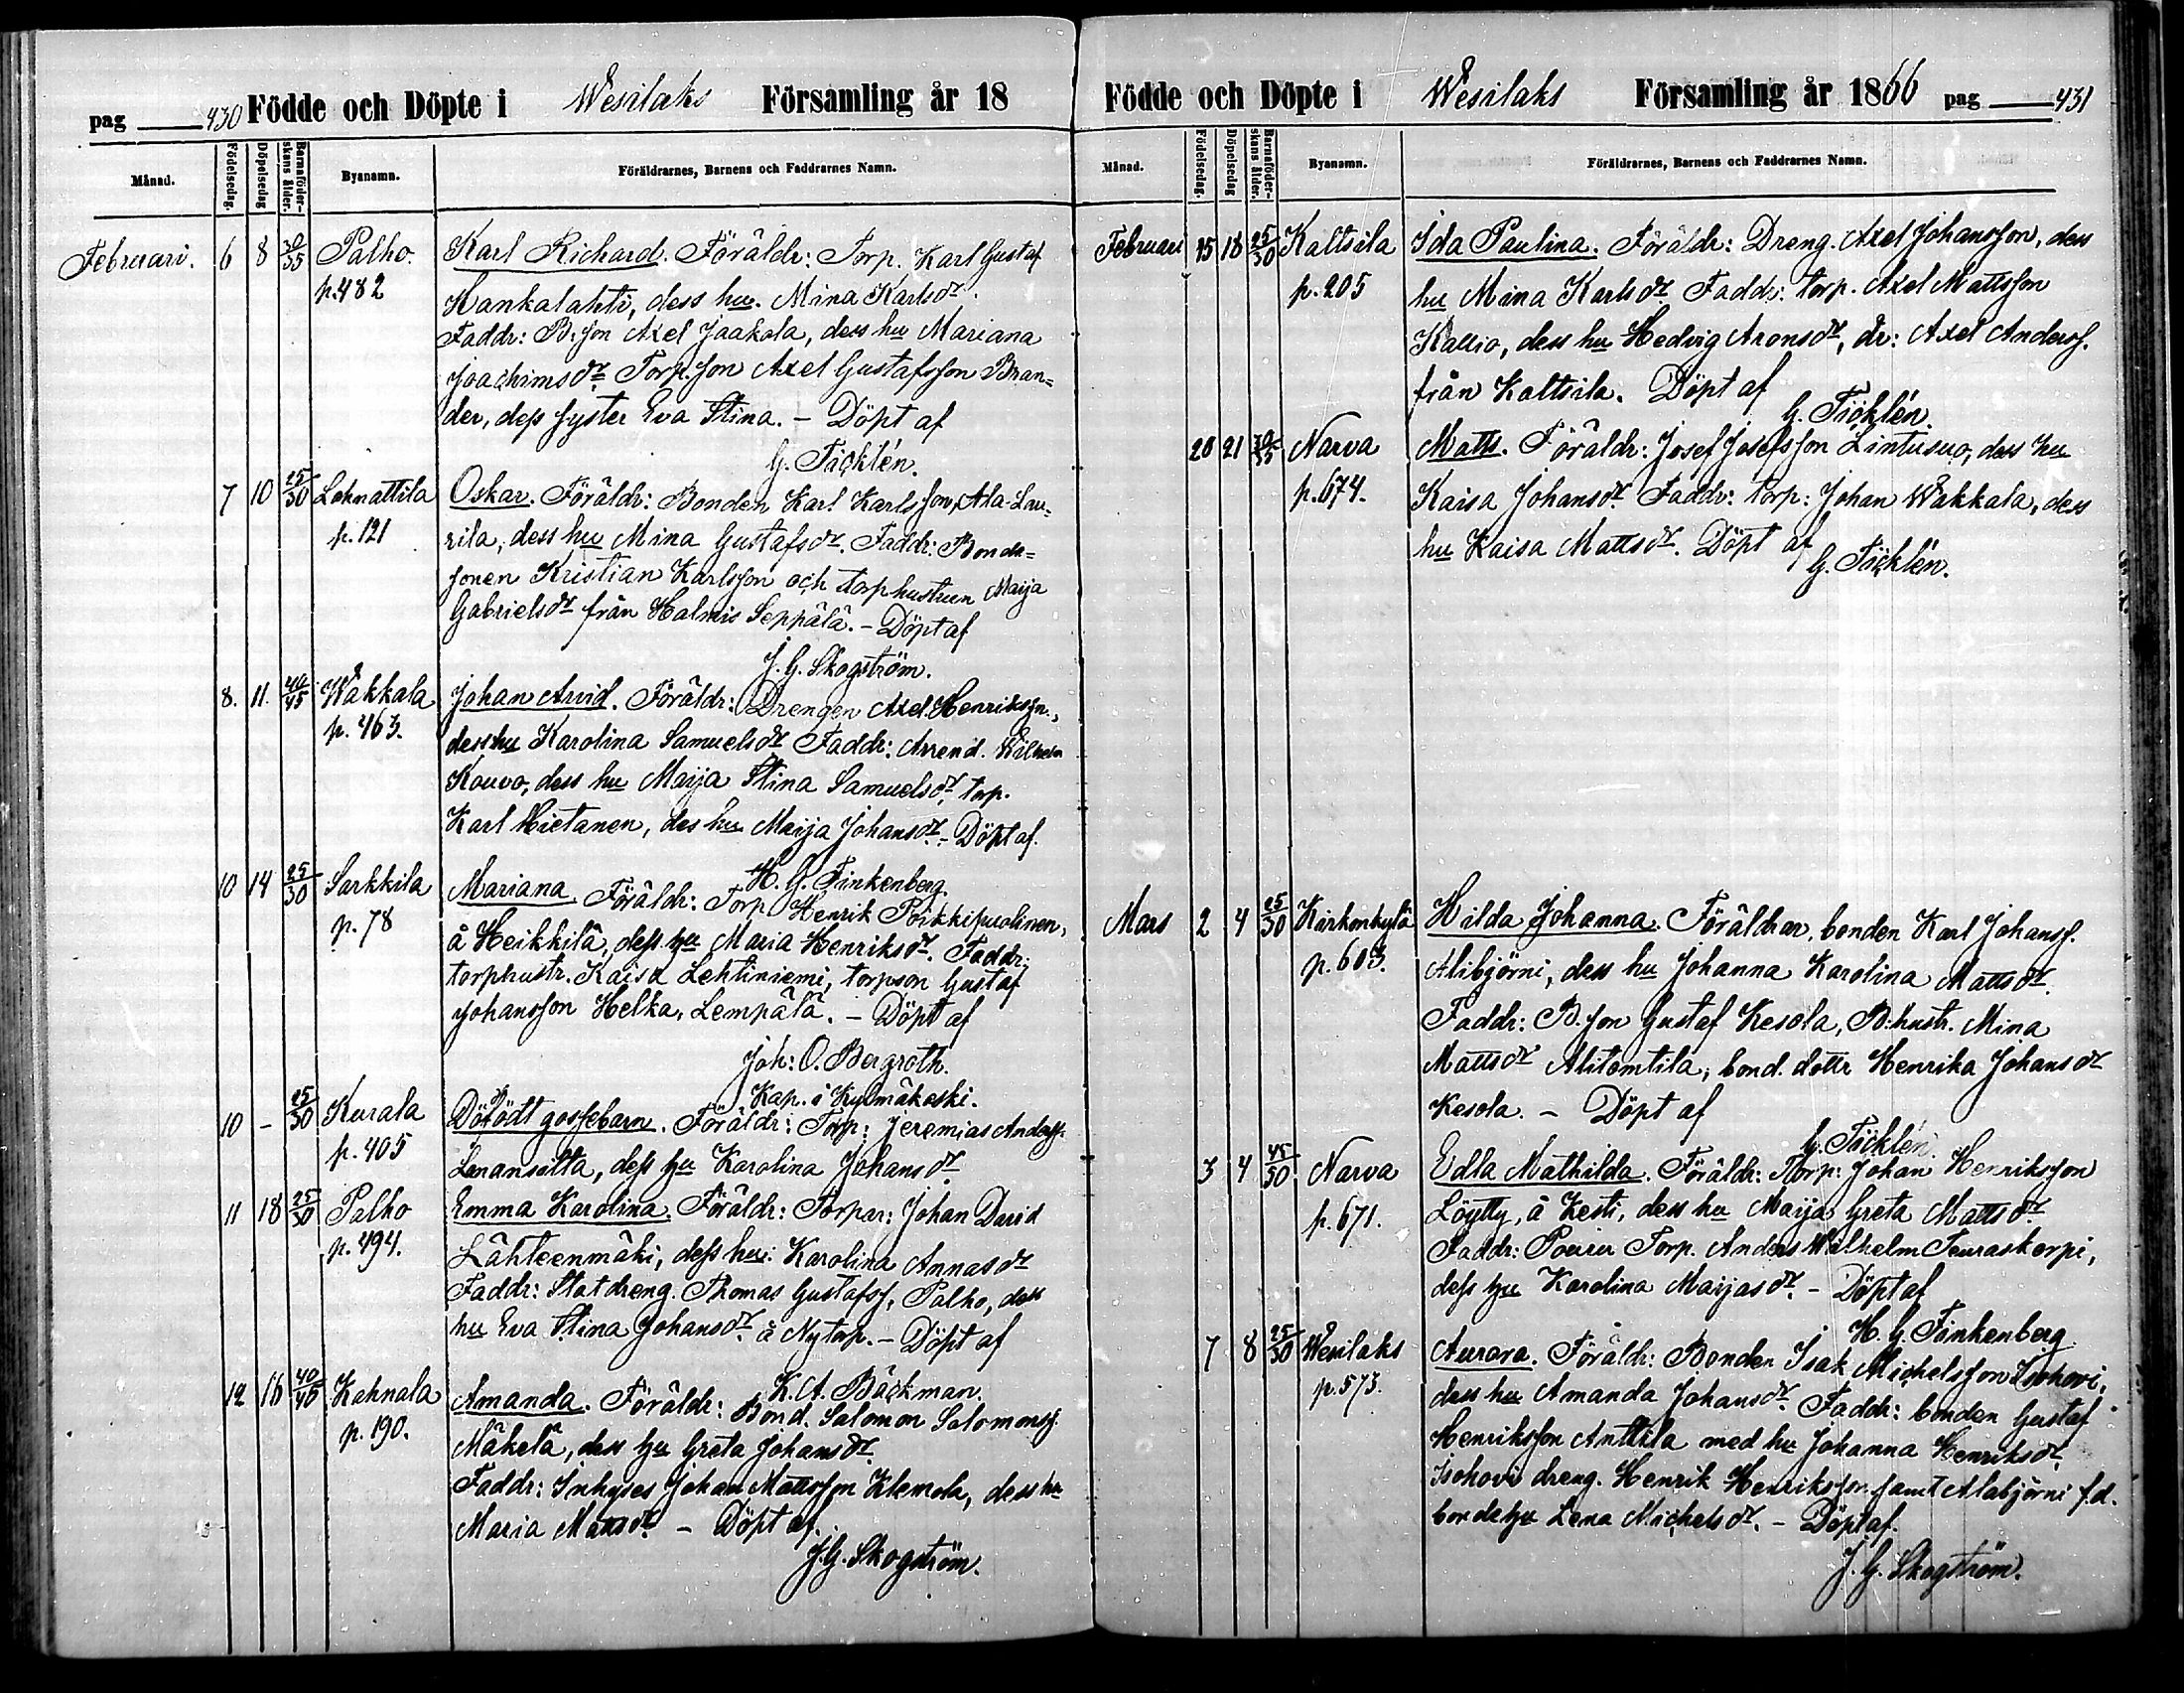 pag 430 Födde och Döpte i Wesilaks Församling år 18
Månad. Födelsedag. Döpelsedag Barnaföder-skans ålder. Byanamn. Föräldrarnes, Barnens och Faddrarnes Namn.
Februari. 6 8 30/35 Palho. Karl Richard. Föräldr: Torp. Karl Gustaf
p. 482 Hankalahti, dess hu. Mina Karlsdr.
Faddr: B. son Axel Jaakola, dess hu Mariana
Joachimsdr. Torp. son Axel Gustafsson Bran=
der, dess syster Eva Stina. – Döpt af
G. Täcklén.
7 10 25/30 Lohnattila Oskar. Föräldr: Bonden Karl Karlsson, Ala-Lau=
p. 121 rila, dess hu Mina Gustafsdr. Faddr: Bonda=
sonen Kristian Karlsson och torphustrun Maija
Gabrielsdr från Halmis Seppälä. – Döpt af
J. G. Skogström.
8. 11. 40/45 Wakkala Johan Arvid. Föräldr: Drengen Axel Henrikssn.,
p. 463. dess hu Karolina Samuelsdr Faddr: Arrend. Wilhelm
Kouvo, dess hu Maija Stina Samuelsdr, torp.
Karl Hietanen, des hu Maija Johansdr. – Döpt af.
H. G. Finkenberg.
10 14 25/30 Sarkkila Mariana Föräldr: Torp Henrik Poikkipuolinen,
p. 78 å Heikkilä, dess hu Maria Henriksdr. Faddr:
torphustr. Kaisa Lehtiniemi, torpson Gustaf
Johansson Helka, Lempälä. – Döpt af
Joh: O. Bergroth.
Kap. i Kylmäkoski.
10 – 25/30 Kurala Dödfödt gossebarn. Föräldr: Torp: Jeremias Anderss.
p. 405 Lenansilta, dess hu Karolina Johansdr.
11 18 25/30 Palho Emma Karolina. Föräldr: Torpar: Johan David
p. 494. Lähteenmäki, dess hu: Karolina Annasdr
Faddr: Statdreng. Thomas Gustafss, Palho, dess
hu Eva Stina Johansdr. å Nytorp. – Döpt af
K. A. Bäckman.
12 16 40/45 Kahnala Amanda. Föräldr: Bond. Salomon Salomonss.
p. 190. Mäkelä, dess hu Greta Johansdr.
Faddr: Inhyses Johan Mattsson Klemola, dess hu
Maria Mattsdr. – Döpt af.
J. G. Skogström.
Födde och Döpte i Wesilaks Församling år 1866 pag 431
Månad. Födelsedag. Döpelsedag Barnaföder-skans ålder. Byanamn. Föräldrarnes, Barnens och Faddrarnes Namn.
Februari 15 18 25/30 Kaltsila Ida Paulina. Föräldr: Dreng. Axel Johansson, dess
p. 205 hu Mina Karlsdr. Faddr: torp. Axel Mattsson
Kallio, dess hu Hedvig Aronsdr, dr: Axel Anderss.
från Kaltsila. Döpt af
G. Täcklén.
20 21 30/35 Narva Matts. Föräldr: Josef Josefsson Lintusuo, dess hu
p. 674. Kaisa Johansdr. Faddr: torp: Johan Wakkala, dess
hu Kaisa Mattsdr. Döpt af
G. Täcklén.
Mars 2 4 25/30 Kirkonkylä Hilda Johanna. Föräldrar, bonden Karl Johanss.
p. 603. Alibjörni, dess hu Johanna Karolina Mattsdr.
Faddr: B. son Gustaf Kesola, B: hustr. Mina
Mattsdr Alitomtila, bond. dottr Henrika Johansdr
Kesola. – Döpt af
G. Täcklén.
3 4 45/50 Narva Edla Mathilda. Föräldr: Torp: Johan Henriksson
p. 671. Löytty, å Kesti, dess hu Maija Greta Mattsdr.
Faddr: Torp. Anders Wilhelm Teuraskorpi,
dess hu Karolina Maijasdr. – Döpt af
H. G. Finkenberg
7 8 25/30 Wesilaks Aurora. Föräldr: Bonden Isak Michelsson Isohovi,
p. 573. dess hu Amanda Johansdr. Faddr: bonden Gustaf
Henriksson Anttila med hu Johanna Henriksdr,
Isohovi dreng. Henrik Henriksson samt Alabjörni f.d.
bondehu Lena Michelsdr. – Döpt af.
J. G. Skogström.